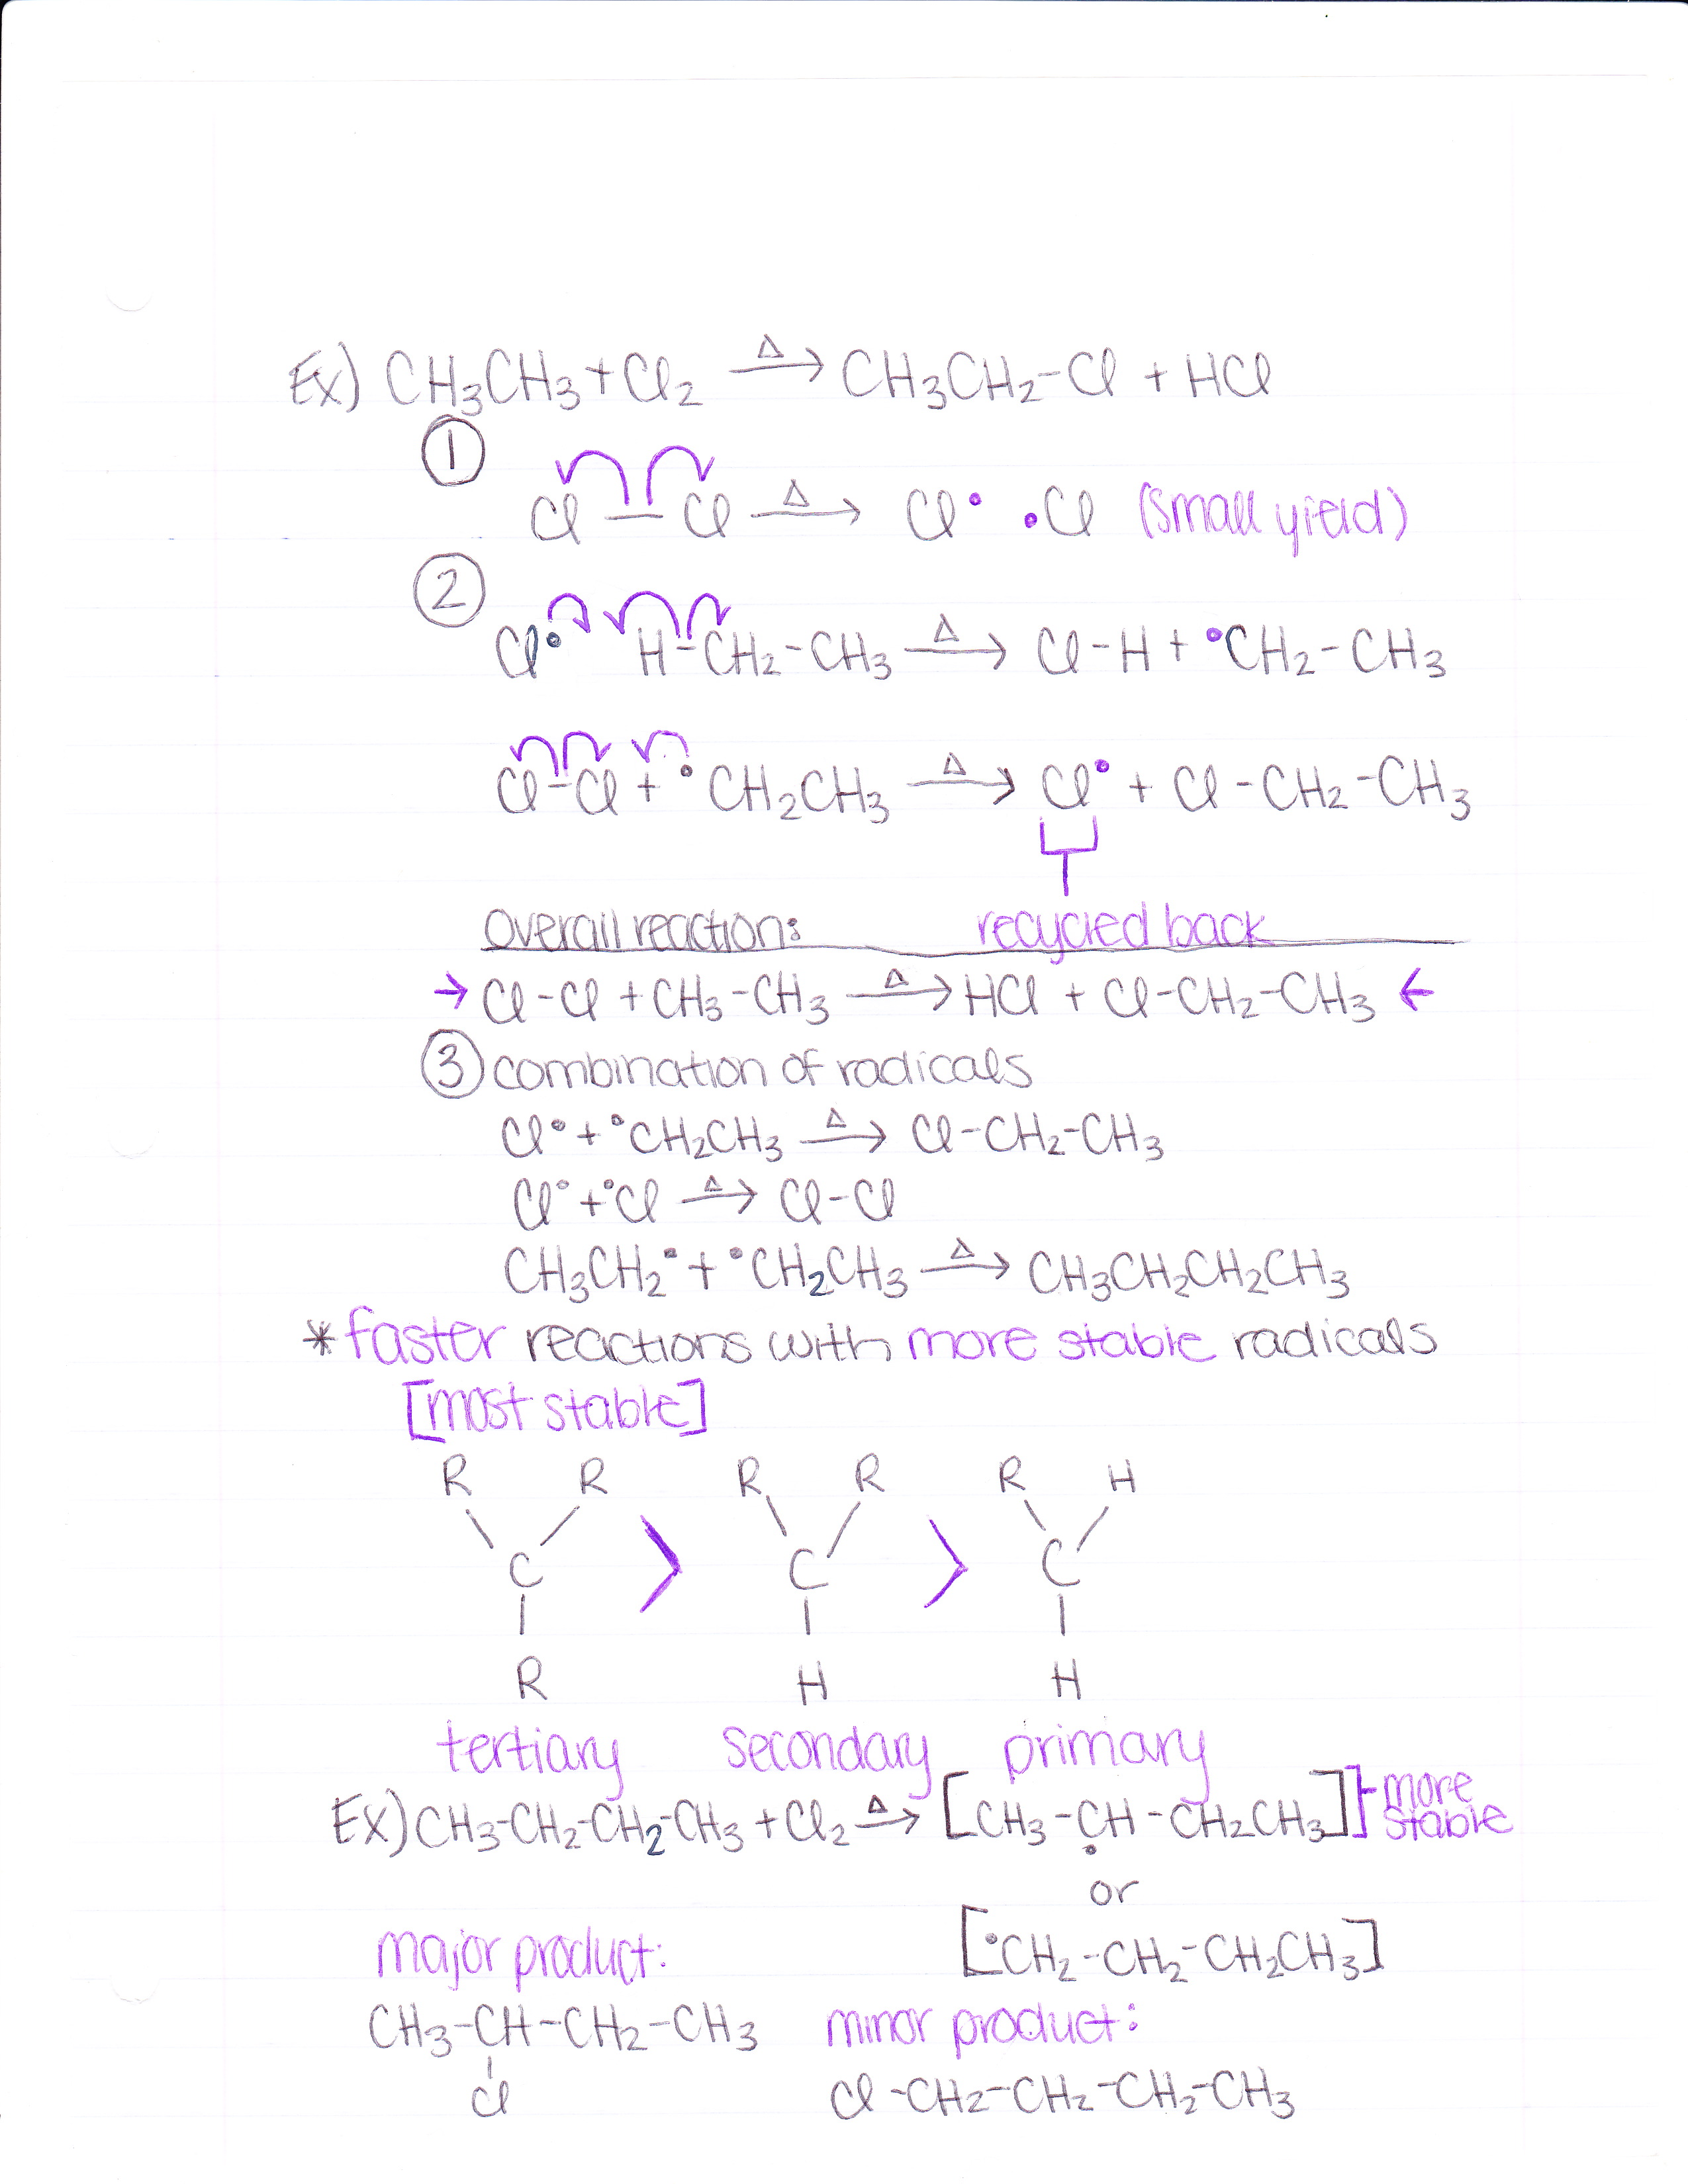 Ex) CH₃CH₃ + Cl₂ —Δ→ CH₃CH₂-Cl + HCl
①
Cl — Cl —Δ→ Cl• •Cl (small yield)
②
Cl• H-CH₂-CH₃ —Δ→ Cl-H + •CH₂-CH₃
Cl-Cl + •CH₂CH₃ —Δ→ Cl• + Cl-CH₂-CH₃
Overall reaction: recycled back
→ Cl-Cl + CH₃-CH₃ —Δ→ HCl + Cl-CH₂-CH₃ ←
③ combination of radicals
Cl• + •CH₂CH₃ —Δ→ Cl-CH₂-CH₃
Cl• + •Cl —Δ→ Cl-Cl
CH₃CH₂• + •CH₂CH₃ —Δ→ CH₃CH₂CH₂CH₃
* faster reactions with more stable radicals
[most stable]
R R R R R H
C > C > C
R H H
tertiary secondary primary
Ex) CH₃-CH₂-CH₂-CH₃ + Cl₂ —Δ→ [CH₃-CH-CH₂CH₃] } more stable
•
or
[•CH₂-CH₂-CH₂CH₃]
major product:
CH₃-CH-CH₂-CH₃
Cl
minor product:
Cl-CH₂-CH₂-CH₂-CH₃